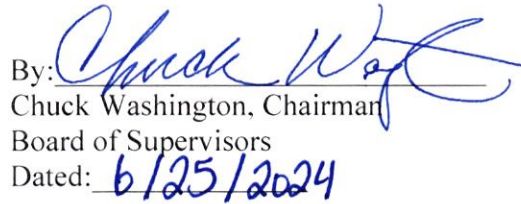 By: Chuck Wa
Chuck Washington, Chairman
Board of Supervisors
Dated: 6/25/2024